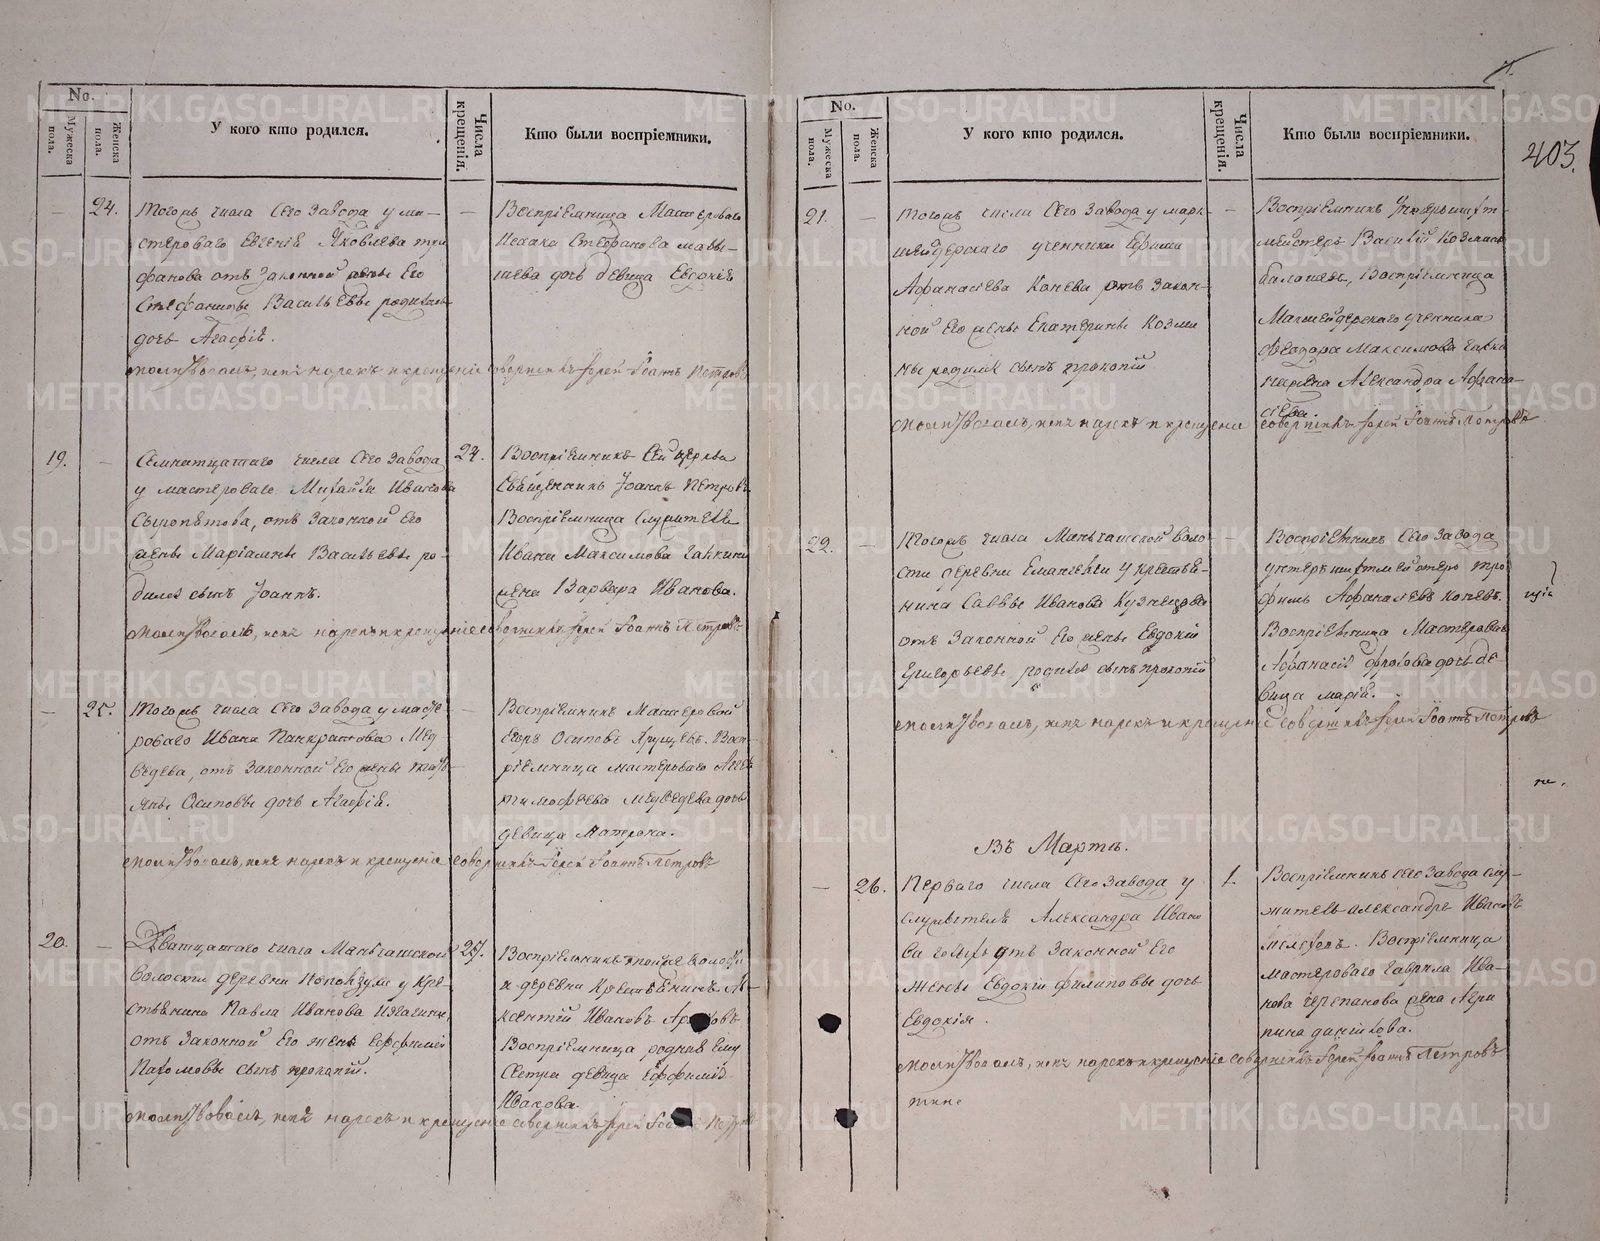 No.
Мужеска пола.
Женска пола.
У кого кто родился.
Числа крещенія.
Кто были воспріемники.
24.
Тогожъ числа Сего Завода у ма-
стероваго Евгенія Яковлева
отъ законной жены Его
Стефаниды Васильевы родилась
дочь Агафія.
молитвовалъ, имя нарекъ и крещеніе совершилъ Іерей Іоаннъ Петровъ
Воспріемница Мастероваго
Исаака Стефанова
дочь девица Евдокія
19.
Семнатцатаго числа Сего Завода
у мастероваго Михайла Иванова
Сыропятова, отъ законной Его
жены Маріамны Васильевы ро-
дился сынъ Іоаннъ.
молитвовалъ, имя нарекъ и крещеніе совершилъ Іерей Іоаннъ Петровъ
24.
Воспріемникъ Сей церкви
Священникъ Іоаннъ Петровъ
Воспріемница Служителя
Ивана Максимова Галкина
жена Варвара Иванова.
25.
Тогожъ числа Сего Завода у масте-
роваго Ивана Панкратова Мед-
ведева, отъ законной Его жены Тать-
яны Осиповы дочь Агафія.
молитвовалъ, имя нарекъ и крещеніе совершилъ Іерей Іоаннъ Петровъ
Воспріемникъ Мастеровой
Егоръ Осиповъ Хрущевъ. Восп-
ріемница мастероваго
Тимофеева Медведева дочь
девица Матрона.
20.
Дватцатаго числа Манчажской
Волости деревни у кре-
стьянина Павла Иванова
отъ Законной Его жены Ефиміи
Пахомовы сынъ прокопій.
молитвовалъ, имя нарекъ и крещеніе совершилъ Іерей Іоаннъ Петровъ
Воспріемникъ тойже волости
и деревни Крестьянинъ А-
ксентій Ивановъ
Воспріемница родная Ему
Сестра девица Ефимія
Иванова.
No.
Мужеска пола.
Женска пола.
У кого кто родился.
Числа крещенія.
Кто были воспріемники.
403.
21.
Тогожъ числа Сего Завода у марк-
шейдерскаго ученика Ефима
Афанасіева Конева отъ Закон-
ной Его жены Екатерины Козми
ны родился сынъ прокопій
молитвовалъ, имя нарекъ и крещеніе совершилъ Іерей Іоаннъ Петровъ
Воспріемникъ Унтершихт-
мейстеръ Василій Козминъ
Балашевъ, Воспріемница
Маркшейдерскаго ученика
Феодора Максимова Галки
на жена Александра Афана-
сіева.
22.
Тогожъ числа Манчажской воло-
сти деревни у крестья-
нина Саввы Иванова Кузнецова
отъ Законной Его жены Евдокіи
Григорьевы родился сынъ прокопій
молитвовалъ, имя нарекъ и крещеніе совершилъ Іерей Іоаннъ Петровъ
Воспріемникъ Сего Завода
унтершихтмейстеръ Тро-
фимъ Афанасіевъ Коневъ.
Воспріемница Мастероваго
Афанасія Фролова дочь де-
вица марія.
Въ Мартѣ.
26.
Перваго числа Сего Завода у
служителя Александра Ивано
ва отъ Законной Его
Жены Евдокіи Филиповы дочь
Евдокія.
молитвовалъ, имя нарекъ и крещеніе совершилъ Іерей Іоаннъ Петровъ
1.
Воспріемникъ сего Завода слу-
житель александръ Ивановъ
Воспріемница
мастероваго гаврила Ива-
нова черепанова жена Агри
пина данилова.
METRIKI.GASO-URAL.RU